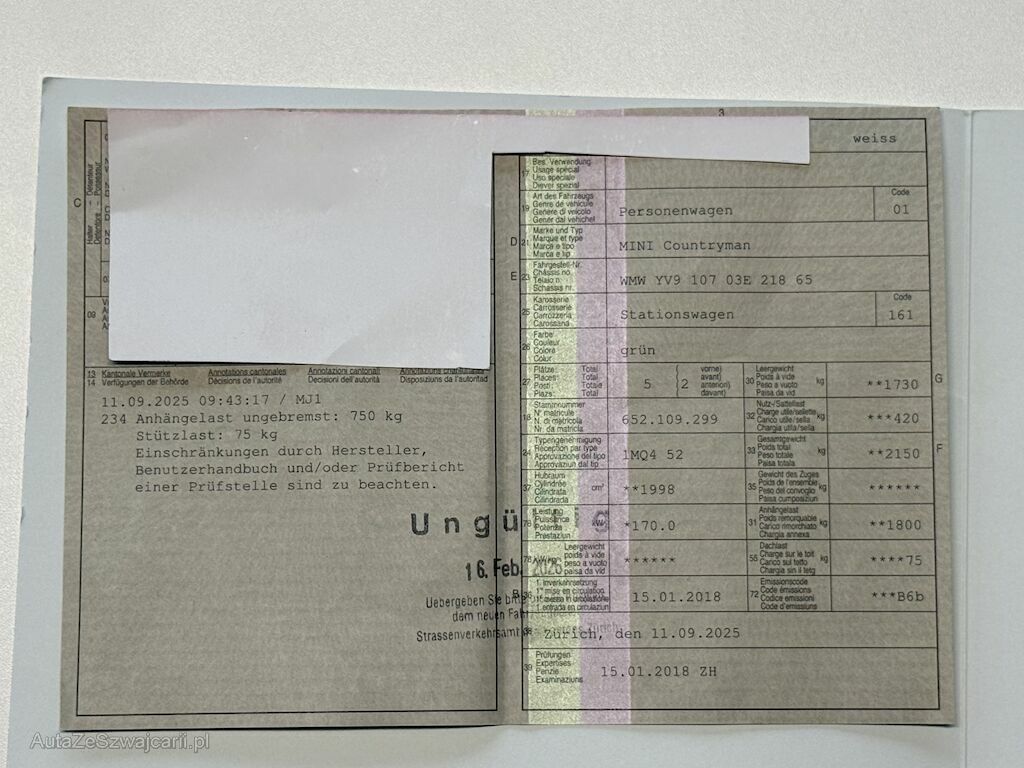 3
weiss
C
Halter
Détenteur
17
Bes. Verwendung
Usage spécial
Uso speciale
Diever spezial
19
Art des Fahrzeugs
Genre de véhicule
Genere di veicolo
Gener dal vehichel
Personenwagen
Code
01
D
21
Marke und Typ
Marque et type
Marca e tipo
Marca e tip
MINI Countryman
E
23
Fahrgestell-Nr.
Châssis no.
Telaio n.
Schassis nr.
WMW YV9 107 03E 218 65
25
Karosserie
Carrosserie
Carrozzeria
Carossaria
Stationswagen
Code
161
26
Farbe
Couleur
Colore
Colur
grün
09
13 Kantonale Vermerke Annotations cantonales Annotazioni cantonali
14 Verfügungen der Behörde Décisions de l'autorité Decisioni dell'autorità Disposiziuns da l'autoritad
11.09.2025 09:43:17 / MJ1
234 Anhängelast ungebremst: 750 kg
Stützlast: 75 kg
Einschränkungen durch Hersteller,
Benutzerhandbuch und/oder Prüfbericht
einer Prüfstelle sind zu beachten.
27
Plätze: Total
Places: Total
Posti: Totale
Plazs: Total
5
( 2
vorne)
avant)
anteriori)
davant)
30
Leergewicht
Poids à vide
Peso a vuoto
Paisa da vid
kg
**1730
G
18
Stammnummer
N° matricule
N. di matricola
Nr. da matricla
652.109.299
32
Nutz-/Sattellast
Charge utile/sellette
Carico utile/sella
Chargia utila/sella
kg
***420
24
Typengenehmigung
Réception par type
Approvazione del tipo
Approvaziun dal tip
1MQ4 52
33
Gesamtgewicht
Poids total
Peso totale
Paisa totala
kg
**2150
F
37
Hubraum
Cylindrée
Cilindrata
Cilindrada
cm³
**1998
35
Gewicht des Zuges
Poids de l'ensemble
Peso del convoglio
Paisa cumposiziun
kg
******
76
Leistung
Puissance
Potenza
Prestaziun
kW
*170.0
31
Anhängelast
Poids remorquable
Carico rimorchiato
Chargia annexa
kg
**1800
78
kW/kg
Leergewicht
poids à vide
peso a vuoto
paisa da vid
******
55
Dachlast
Charge sur le toit
Carico sul tetto
Chargia sin il tetg
kg
****75
B
36
1. Inverkehrsetzung
1re mise en circulation
1. messa in circolazione
1. entrada en circulaziun
15.01.2018
72
Emissionscode
Code émissions
Codice emissioni
Code d'emissiuns
***B6b
38
Zürich, den 11.09.2025
39
Prüfungen
Expertises
Perizie
Examinaziuns
15.01.2018 ZH
16. Feb. 2026
Uebergeben Sie
dem neuen
Strassenverkehrsamt des Kantons Zürich
AutaZeSzwajcarii.pl